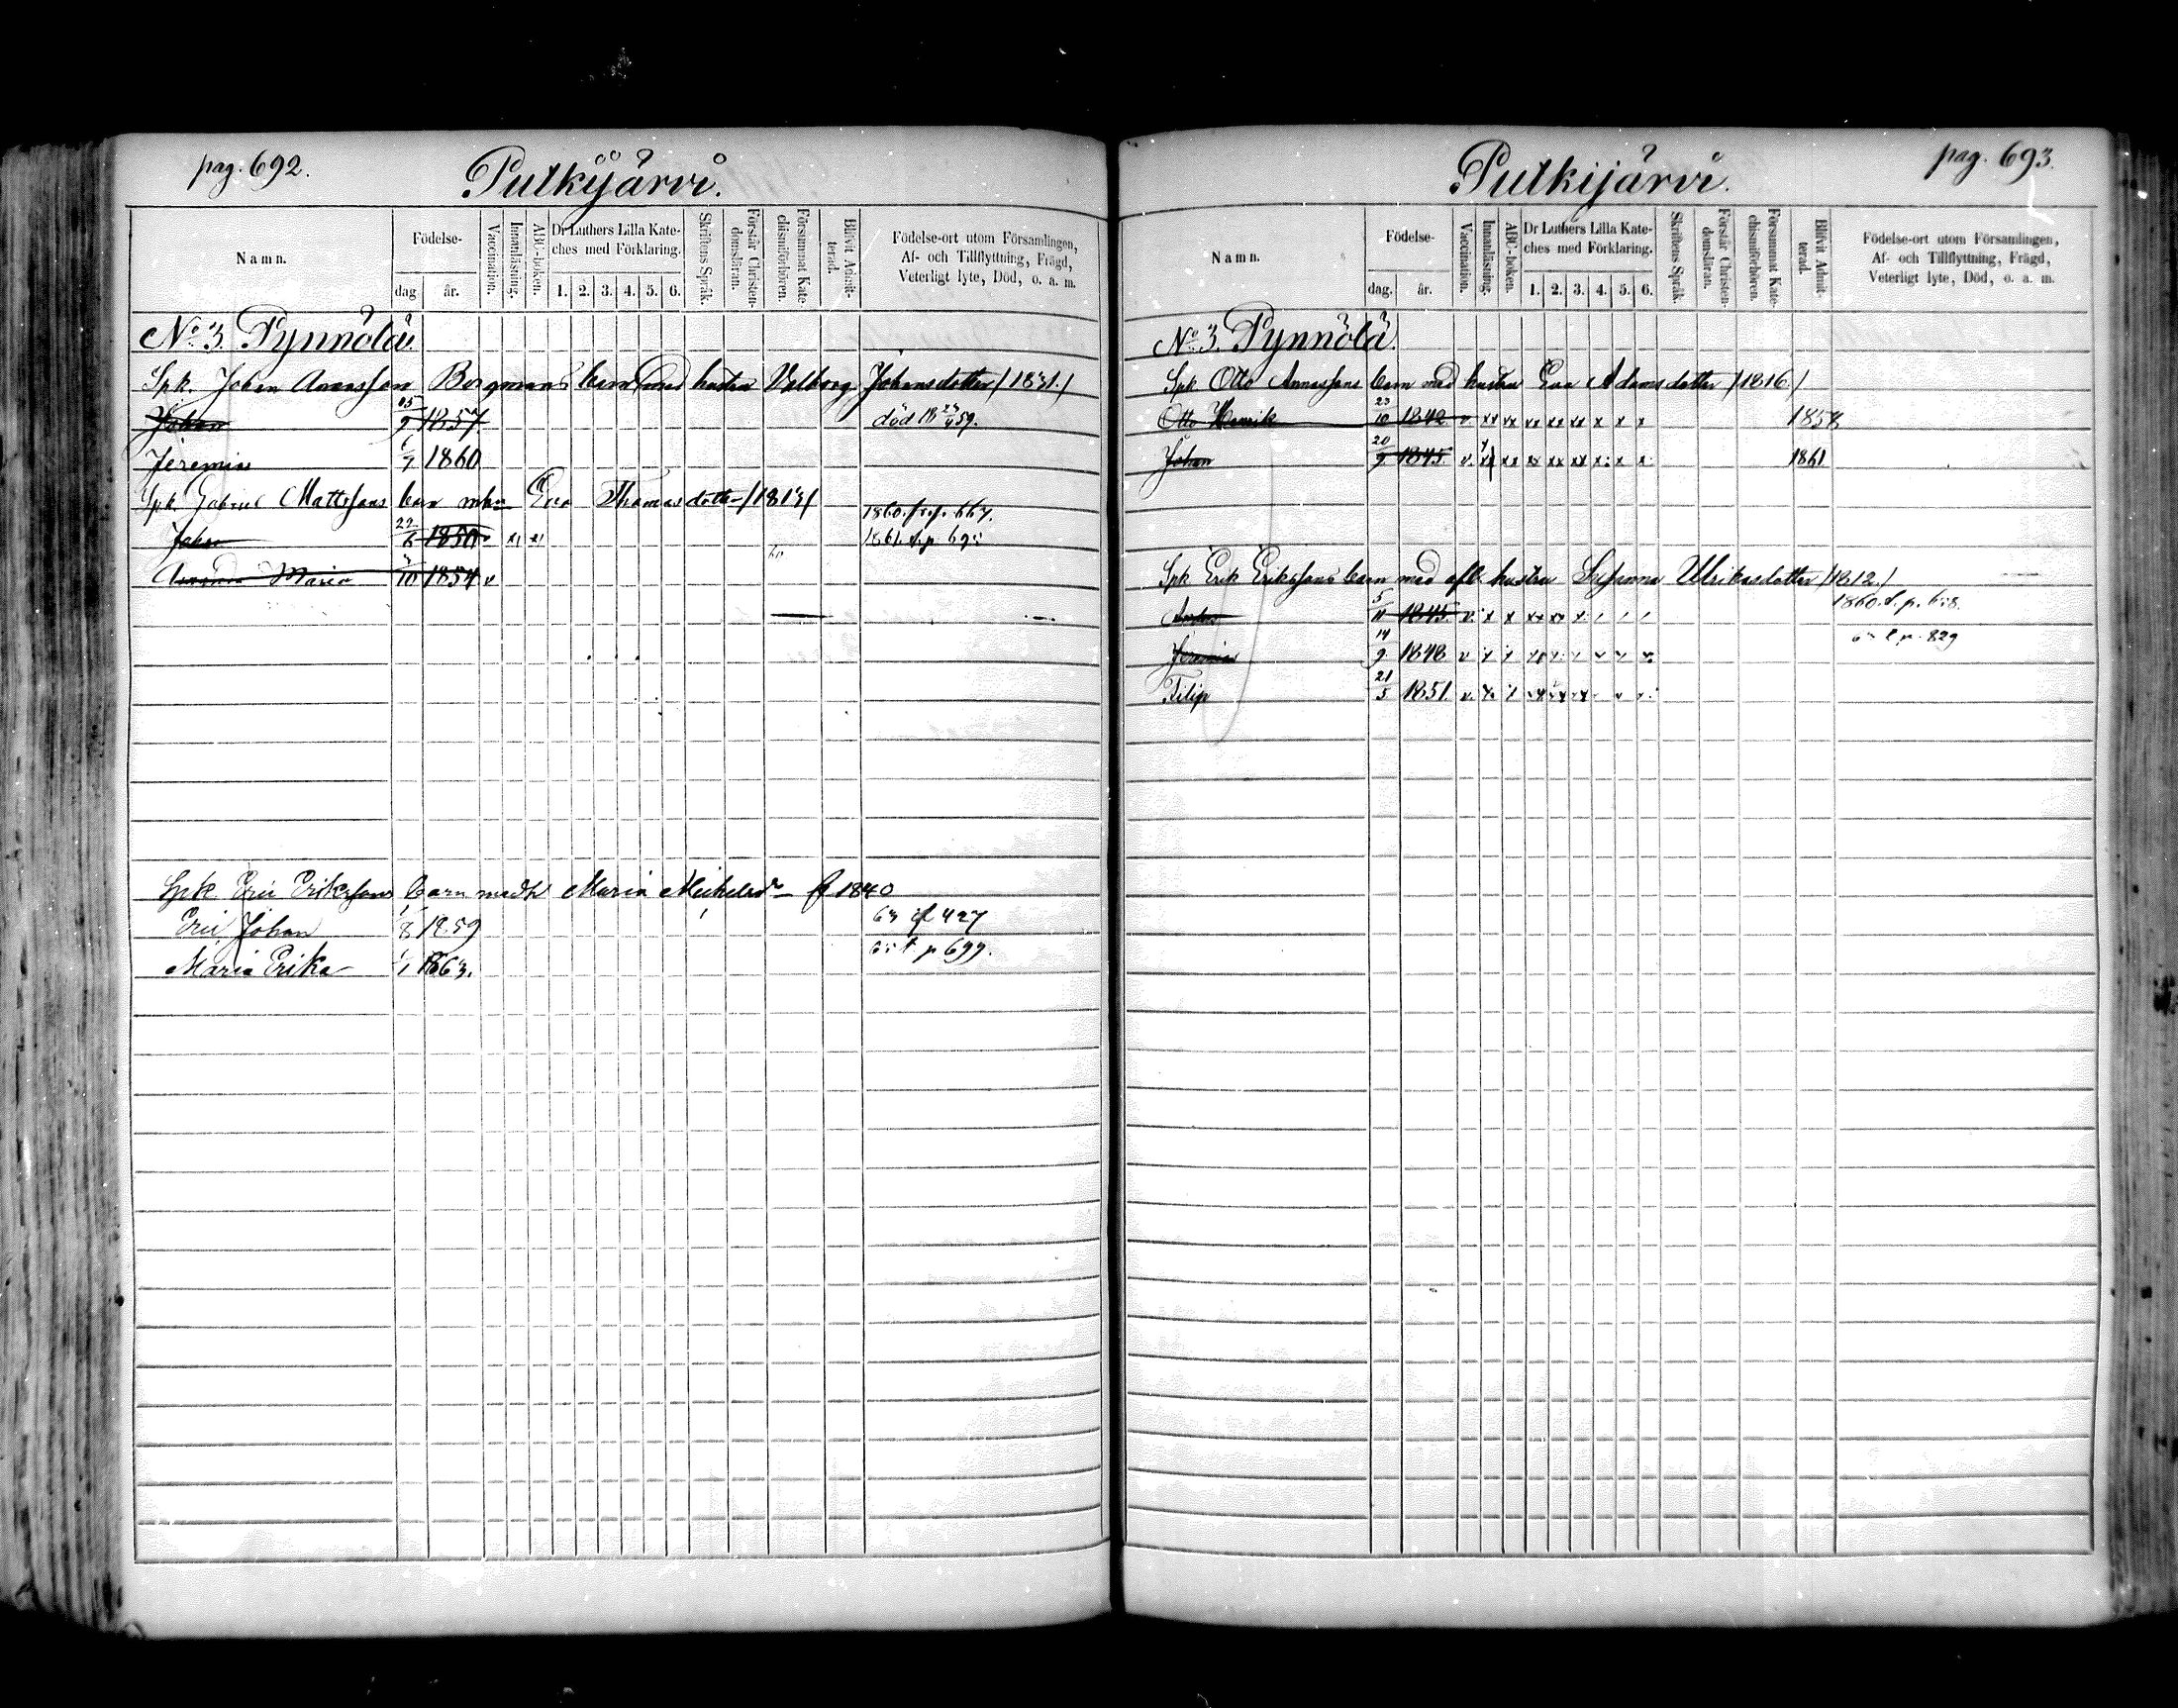 pag. 692.
Putkijärvi.
Namn.
Födelse-
dag
år.
Vaccination.
Innanläsning.
ABC-boken.
Dr Luthers Lilla Kate-
ches med Förklaring.
1. 2. 3. 4. 5. 6.
Skriftens Språk.
Förstår Christen-
domsläran.
Försummat Kate-
chismiförhören.
Blifvit Admit-
terad.
Födelse-ort utom Församlingen,
Af- och Tillflyttning, Frägd,
Veterligt lyte, Död, o. a. m.
No 3. Pynnölä.
Spk. Johan Bergmans barn med hustru Valborg Johansdotter /1831./
Johan 9 1857. död 59.
Jeremias 1860
Spk. Gabriel Mattssons barn Eva Thomasdotter /1813/
1860. 667.
Johan 22/6 1850 1861.
Maria 10 1854 v
Spk Eric Erikssons barn med h Maria f 1840
Eric Johan 1/8 1859 63 427
Maria Erika 1/1 1863. t. p 699.
pag. 693.
Putkijärvi.
Namn.
Födelse-
dag.
år.
Vaccination.
Innanläsning.
ABC-boken.
Dr Luthers Lilla Kate-
ches med Förklaring.
1. 2. 3. 4. 5. 6.
Skriftens Språk.
Förstår Christen-
domsläran.
Försummat Kate-
chismiförhören.
Blifvit Admit-
terad.
Födelse-ort utom Församlingen,
Af- och Tillflyttning, Frägd,
Veterligt lyte, Död, o. a. m.
No 3. Pynnölä.
Spk Otto barn med hustru Eva Adamsdotter /1816./
Otto Henrik 23/10 1842 v. xx xx xx xx xx x x x 1858
Johan 20/9 1845. v. 1861
Spk Erik Erikssons barn med afl. hustru Susanna Ulriksdotter /1812./
5/11 1845. v. x x 1860. t. p.
Jeremias 14/9 1848 v p. 829
Filip 21/5 1851. v.